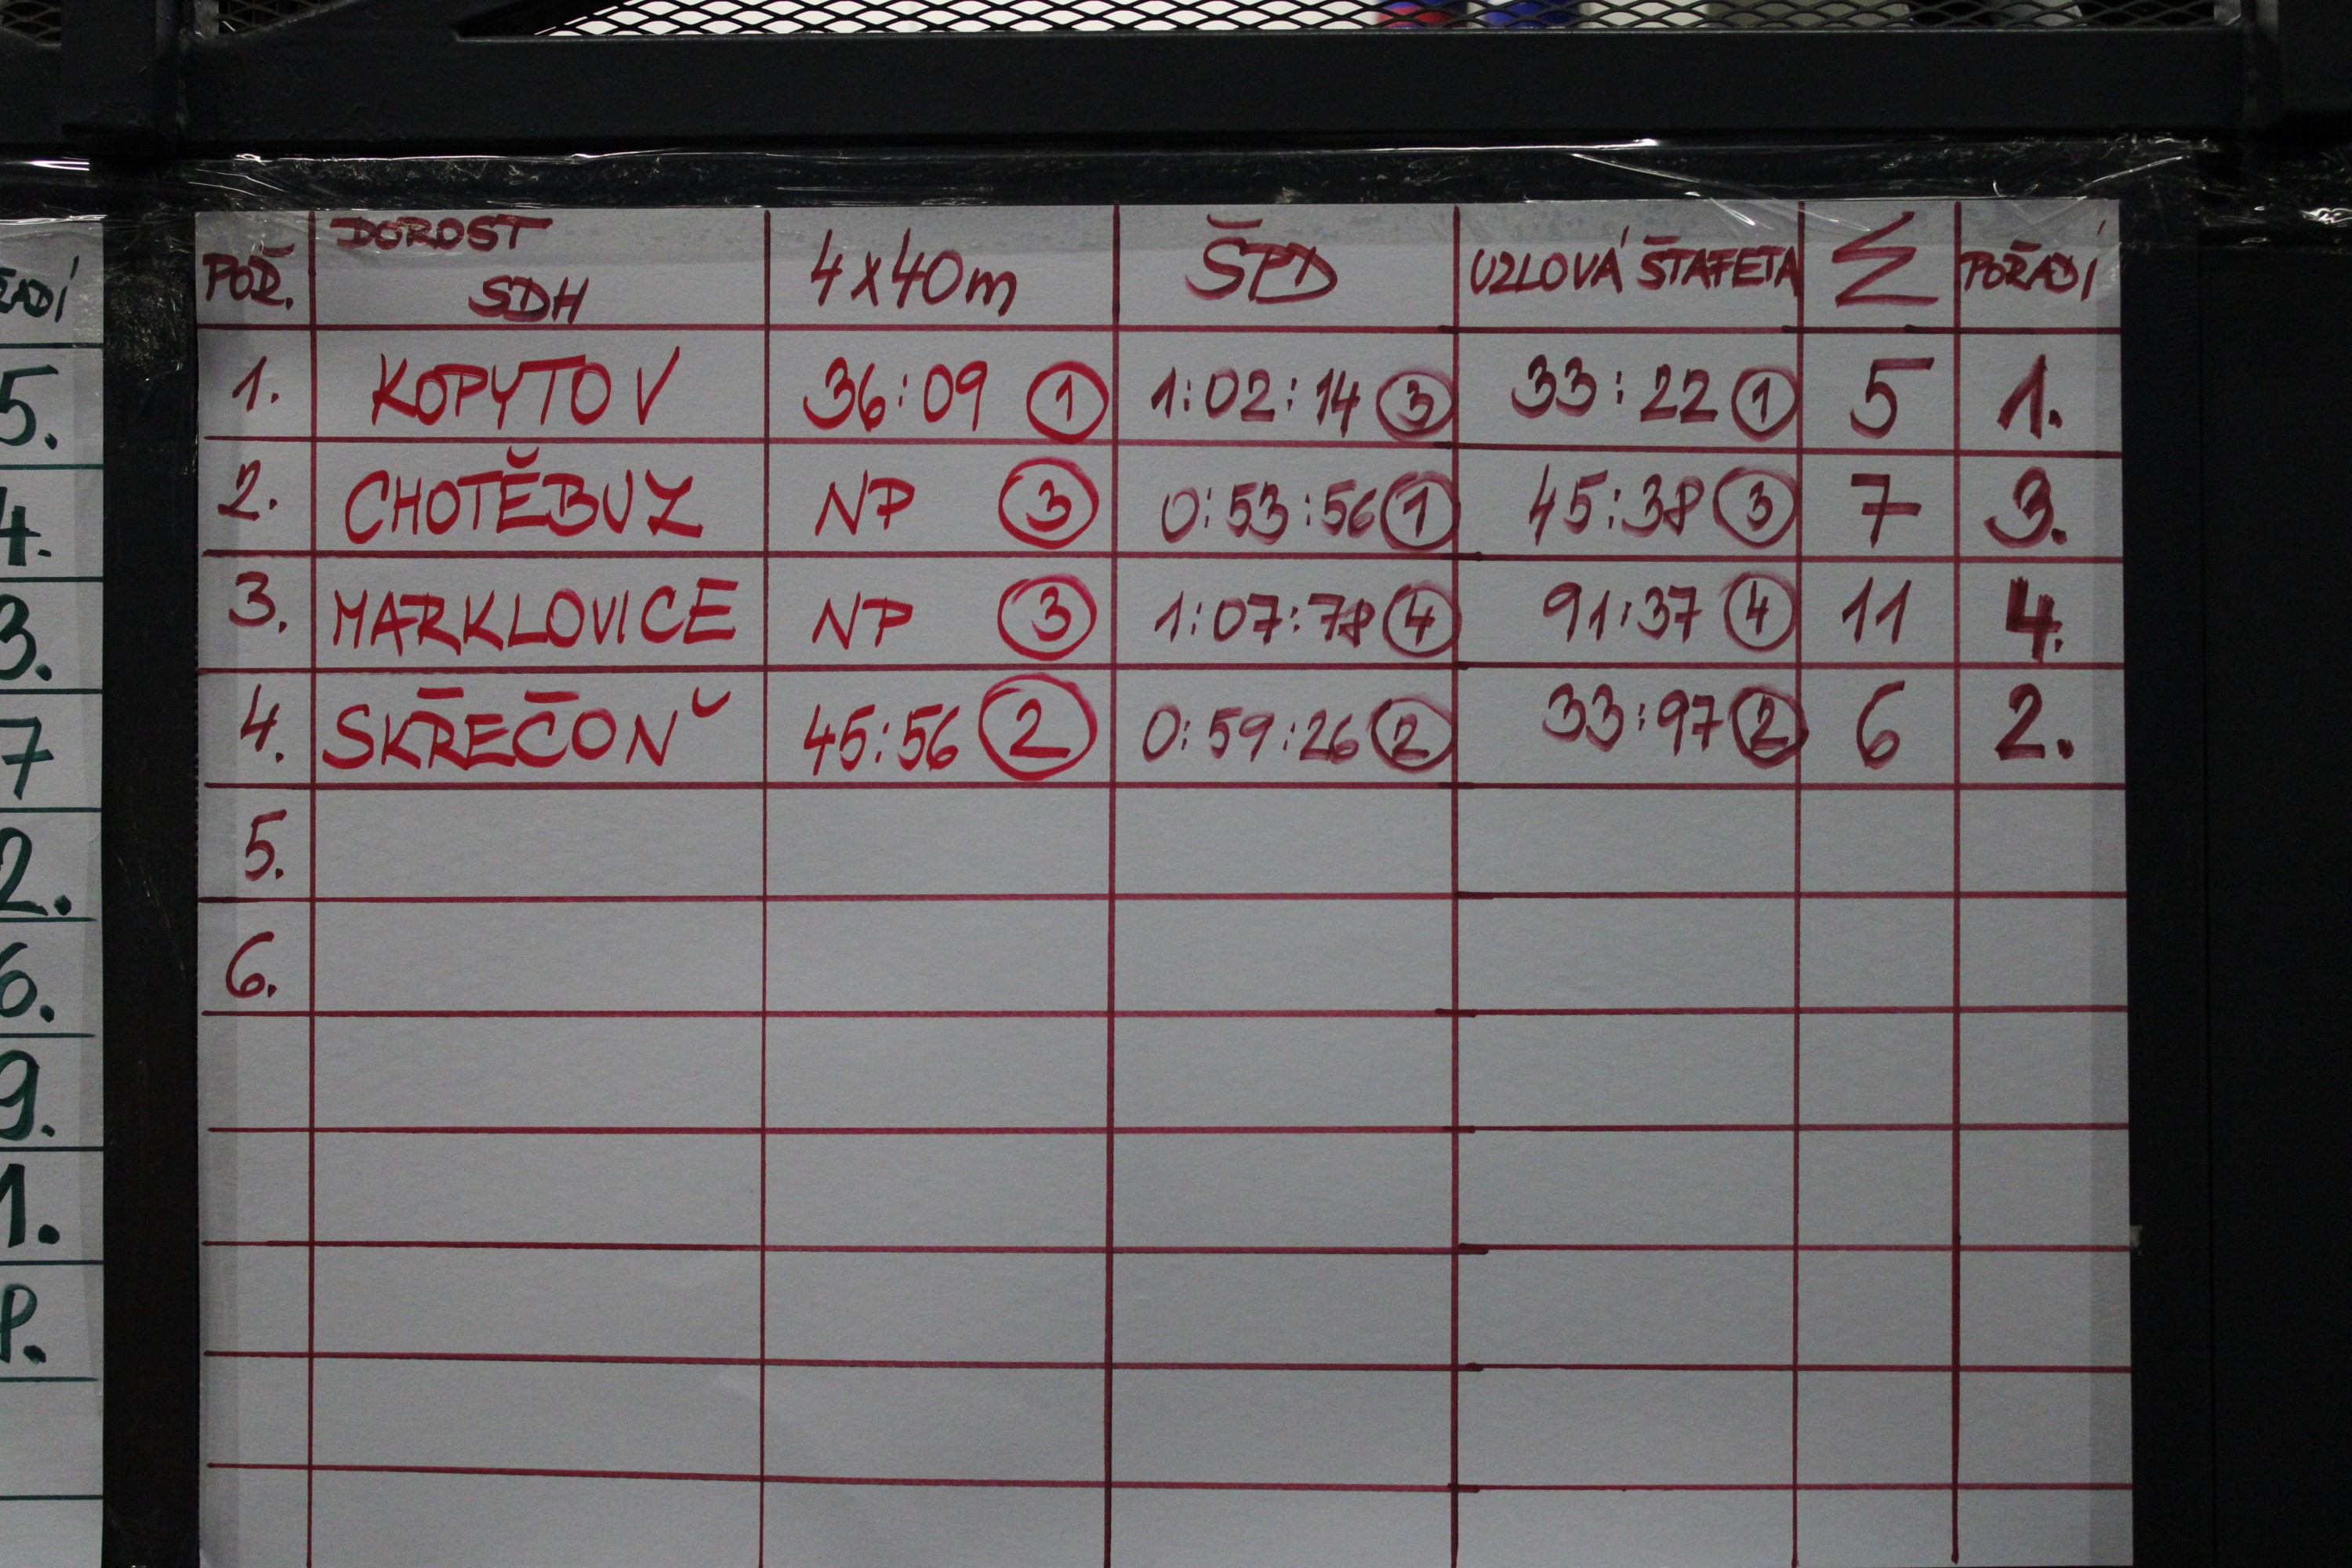 ŘADÍ
5.
4.
3.
7
2.
6.
9.
1.
P.
POŘ. DOROST SDH 4x40m ŠPD UZLOVÁ ŠTAFETA Σ POŘADÍ
1. KOPYTOV 36:09 1 1:02:14 3 33:22 1 5 1.
2. CHOTĚBUZ NP 3 0:53:56 1 45:38 3 7 3.
3. MARKLOVICE NP 3 1:07:78 4 91:37 4 11 4.
4. SKŘEČOŇ 45:56 2 0:59:26 2 33:97 2 6 2.
5.
6.